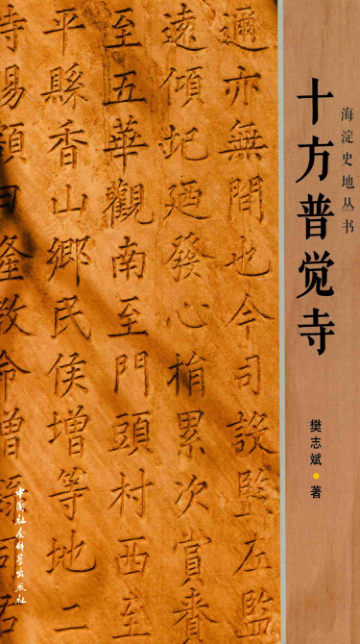 海淀史地丛书
十方普觉寺
樊志斌 著
邇亦無間也今司設監左監
遠傾圮廼發心捐累次賞賚
至五華觀南至門頭村西至
平縣香山鄉民侯增等地二
中国社会科学出版社